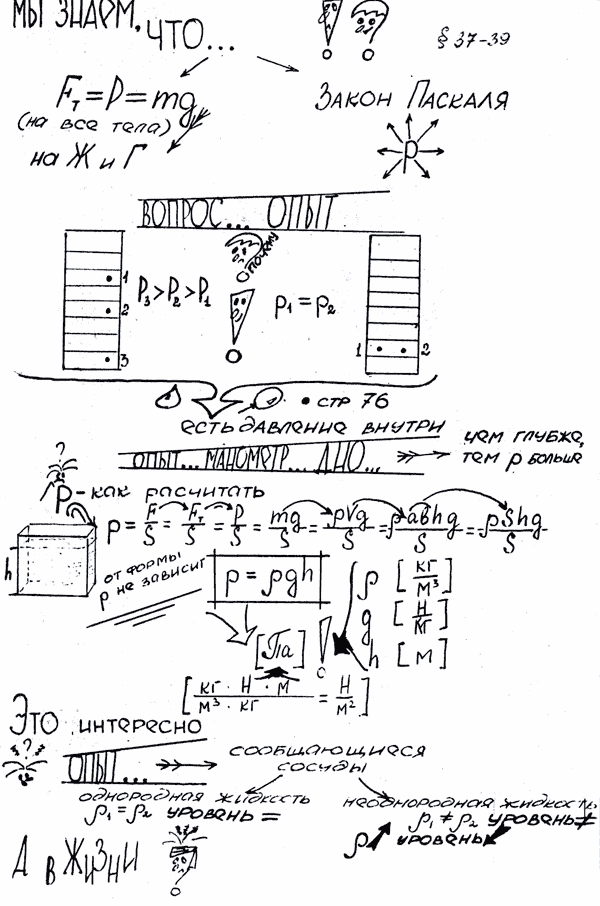 МЫ ЗНАЕМ, ЧТО...
§ 37-39
Fт = P = mg
(на все тела)
на Ж и Г
ЗАКОН ПАСКАЛЯ
p
ВОПРОС... ОПЫТ
почему
1
2
3
P3 > P2 > P1
p1 = p2
1 2
• СТР 76
ЕСТЬ ДАВЛЕНИЕ ВНУТРИ
ОПЫТ... МАНОМЕТР... ДНО...
ЧЕМ ГЛУБЖЕ,
ТЕМ p БОЛЬШЕ
?
p - КАК РАСЧИТАТЬ
p = F/S = Fт/S = P/S = mg/S = ρVg/S = ρabhg/S = ρShg/S
h
ОТ ФОРМЫ
p НЕ ЗАВИСИТ
p = ρgh
ρ [кг/м³]
g [Н/кг]
h [м]
[Па]
[кг · Н · м / м³ · кг = Н/м²]
ЭТО ИНТЕРЕСНО
?
ОПЫТ...
СООБЩАЮЩИЕСЯ
СОСУДЫ
ОДНОРОДНАЯ ЖИДКОСТЬ
ρ1 = ρ2 УРОВЕНЬ =
НЕОДНОРОДНАЯ ЖИДКОСТЬ
ρ1 ≠ ρ2 УРОВЕНЬ ≠
ρ↗ УРОВЕНЬ↙
А В ЖИЗНИ